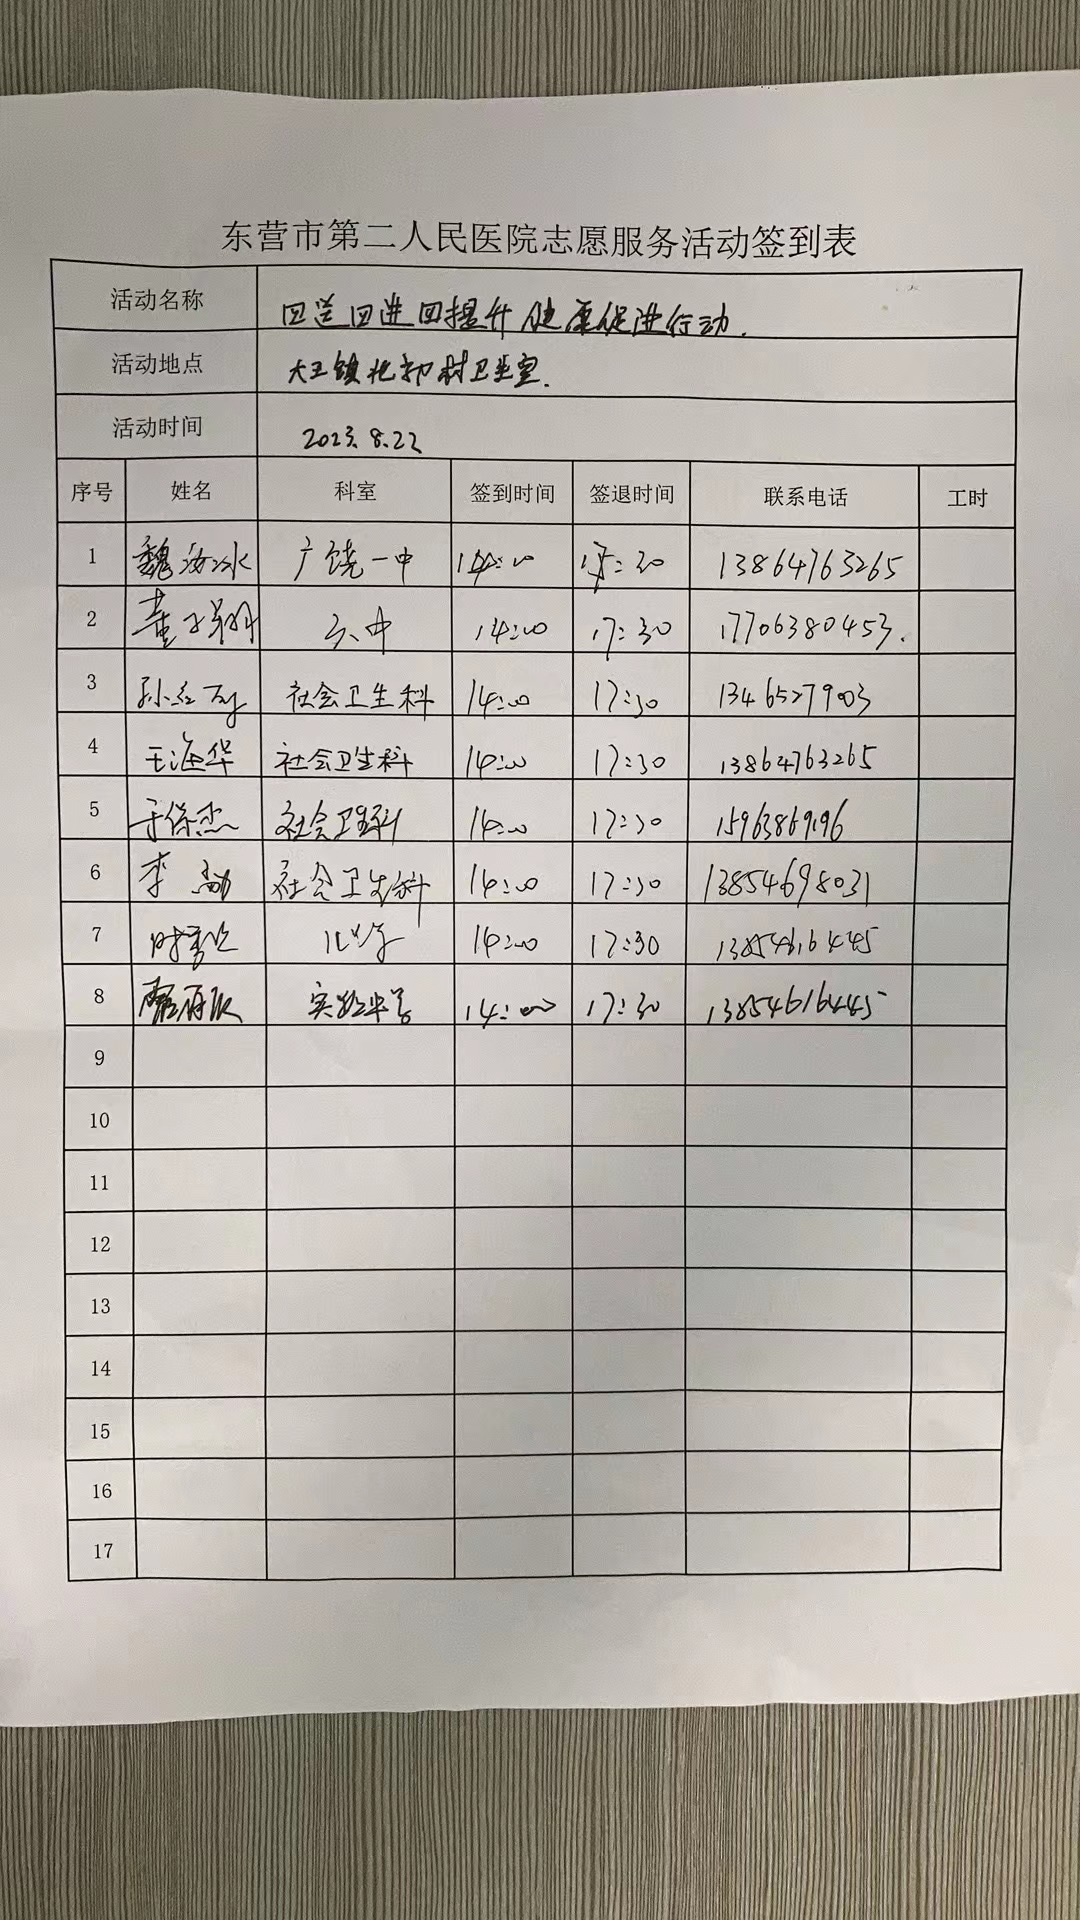 东营市第二人民医院志愿服务活动签到表
活动名称 四送四进四提升健康促进行动.
活动地点 大王镇北 村卫生室.
活动时间 2023.8.22
序号 姓名 科室 签到时间 签退时间 联系电话 工时
1 魏汝冰 广饶一中 14:00 17:30 13864763265
2 董子翔 六中 14:00 17:30 17706380453.
3 孙红 社会卫生科 14:00 17:30 13465279003
4 王海华 社会卫生科 14:00 17:30 13864763265
5 于保杰 社会卫生科 14:00 17:30 15963869196
6 李勐 社会卫生科 14:00 17:30 13854698031
7 时 14:00 17:30 13854616445
8 实验中学 14:00 17:30 13854616445
9
10
11
12
13
14
15
16
17